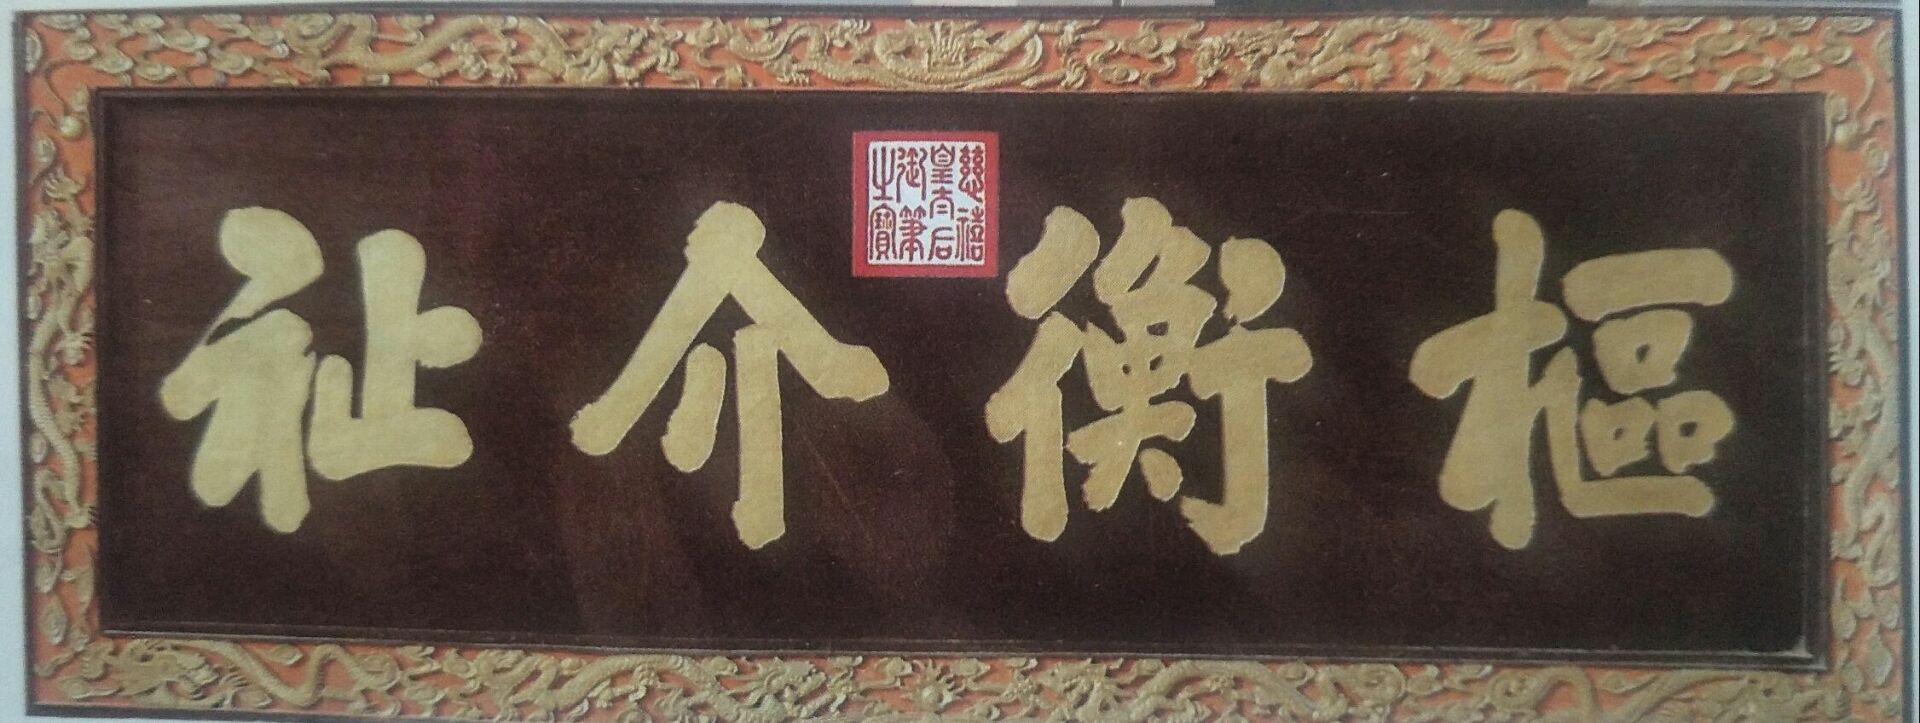 樞衡介祉
慈禧
皇太后
御筆
之寶